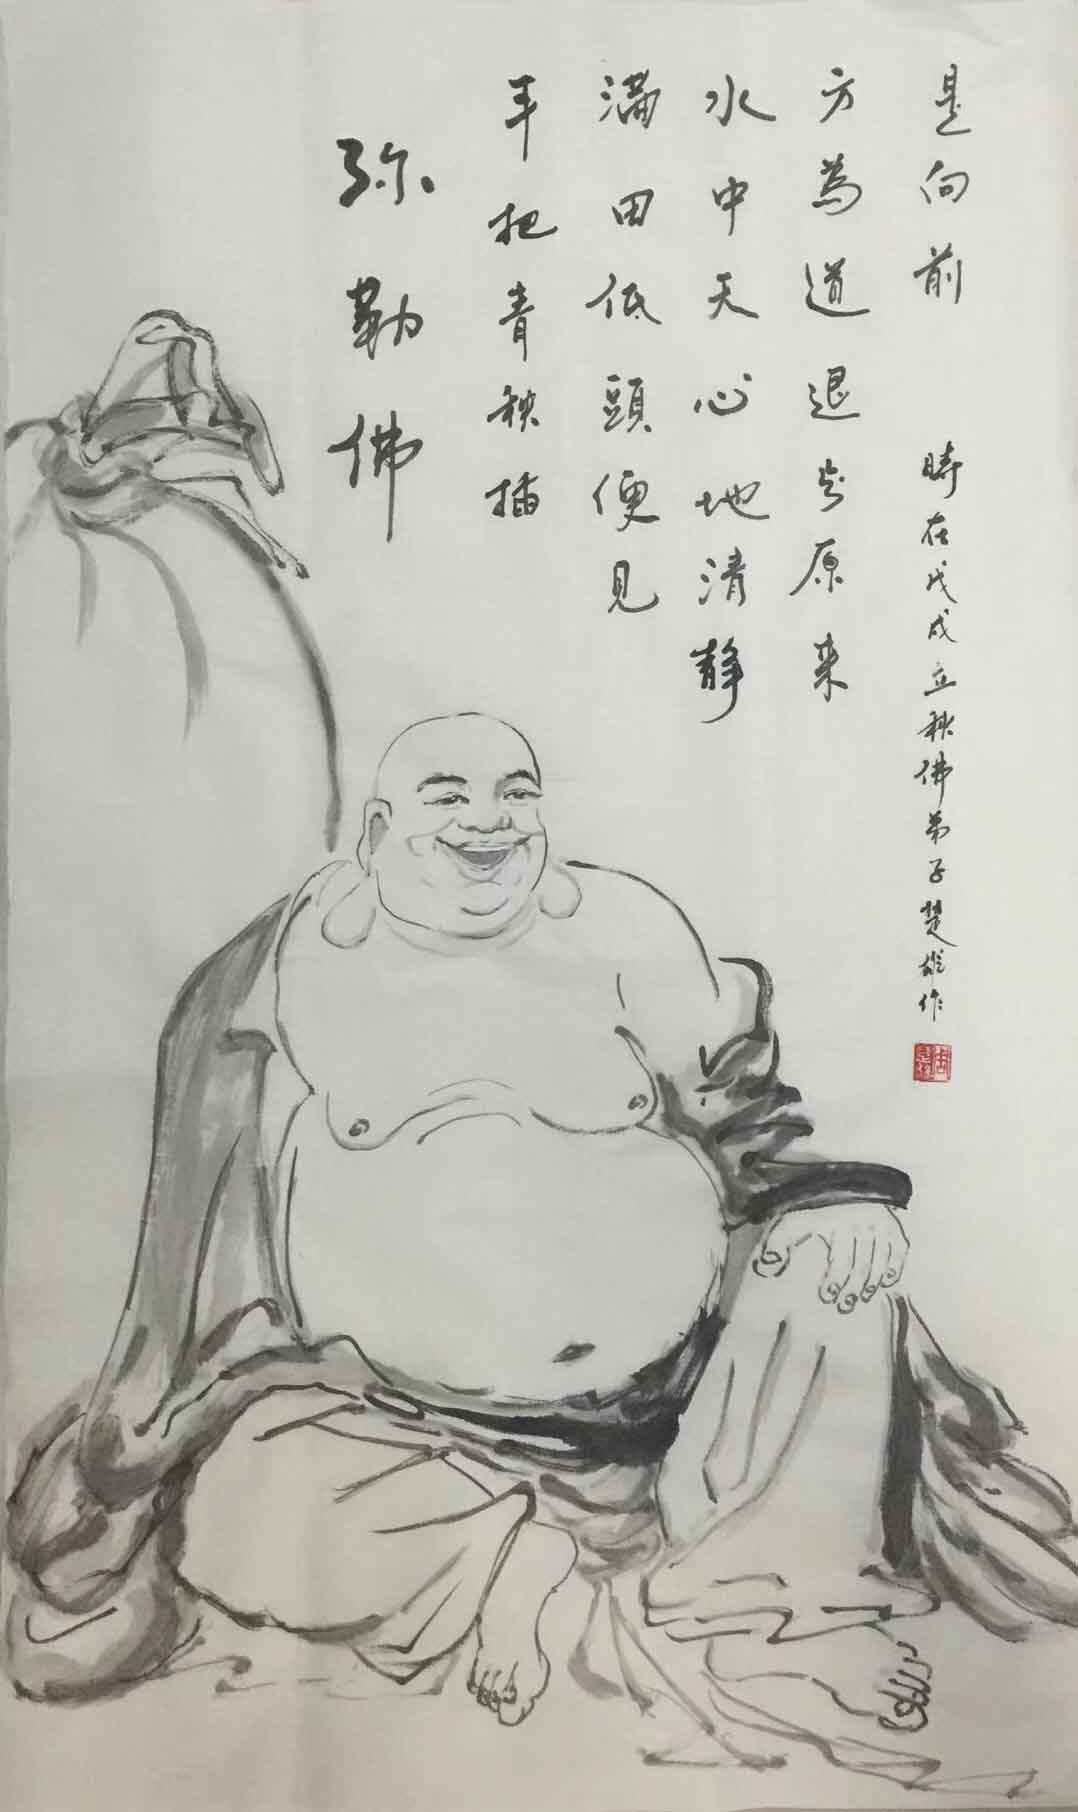 弥勒佛
手把青秧插
满田低頭便見
水中天心地清静
方為道退步原来
是向前
時在戊戌立秋佛弟子楚雄作